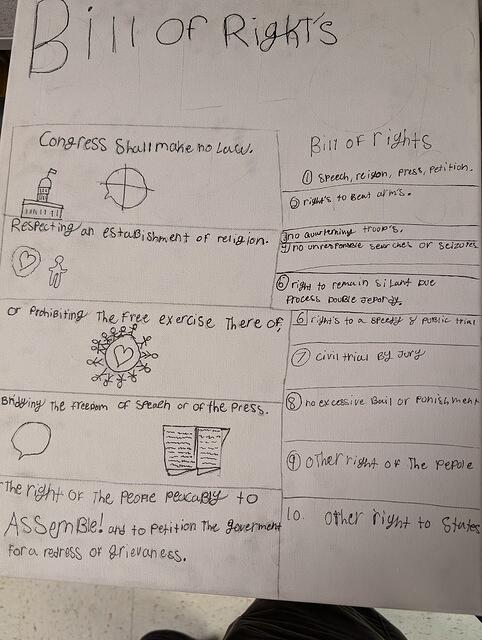 Bill of Rights
Congress Shall make no Law.
Respecting an establishment of religion.
or Prohibiting The Free exercise There of;
Bridging The freedom of speach or of the Press.
The right of The People peacably to
Assemble! and to petition The goverment
for a redress of grievaness.
Bill of rights
① speech, reigion, press, petition.
② right's to beat arm's.
3) no quartening troop's.
4) no unresponsible searches or seizotes
⑤ right to remain silant Due
Process Double Jepordy.
6 right's to a speedy & public trial
⑦ civil trial By Jury
⑧ no excessive Bail or Ponishment
⑨ other right of The Pepole
10. other right to States